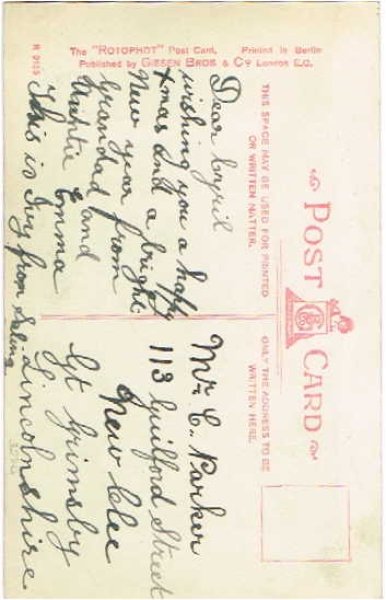 The "ROTOPHOT" Post Card, Printed in Berlin
Published by GIESEN BROS & Co London E.C.
POST CARD
THIS SPACE MAY BE USED FOR PRINTED
OR WRITTEN MATTER.
ONLY THE ADDRESS TO BE
WRITTEN HERE.
Dear Cyril
wishing you a happy
xmas and a bright
New year from
Grandad and
Auntie Emma
This is Ivy from
Mr C. Parker
113 Guilford Street
New Clee
Gt Grimsby
Lincolnshire